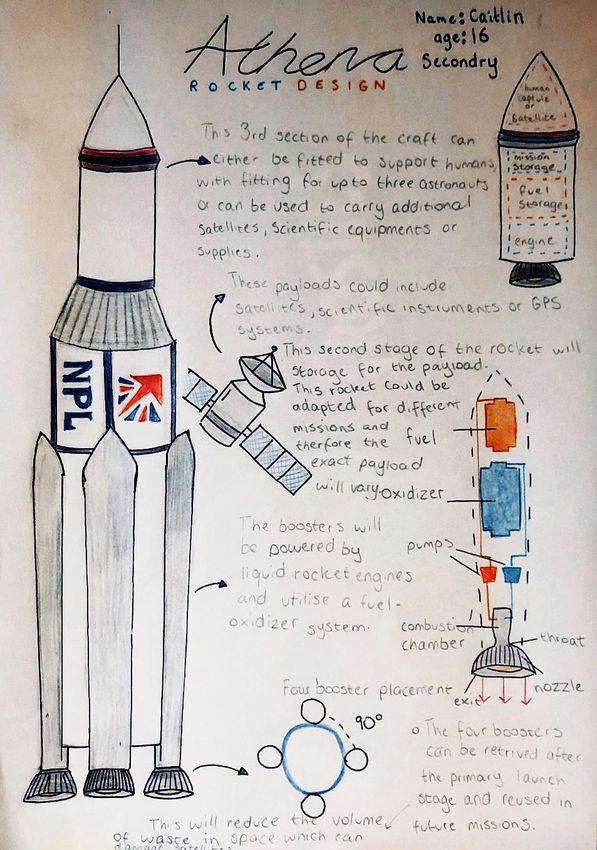 Name: Caitlin
age: 16
Secondry
Athena
ROCKET DESIGN
This 3rd section of the craft can
either be fitted to support humans,
with fitting for up to three astronauts
or can be used to carry additional
satellites, scientific equipments or
supplies.
human
capsule
or
Satellite
mission
storage
fuel
storage
engine
These payloads could include
satellites, scientific instruments or GPS
systems.
This second stage of the rocket will
storage for the payload.
This rocket could be
adapted for different
missions and
therfore the
exact payload
will vary.
NPL
fuel
oxidizer
pumps
combustion
chamber
throat
exit
nozzle
The boosters will
be powered by
liquid rocket engines
and utilise a fuel-
oxidizer system.
Four booster placement
90°
The four boosters
can be retrived after
the primary launch
stage and reused in
future missions.
This will reduce the volume
of waste in space which can
damage satellites